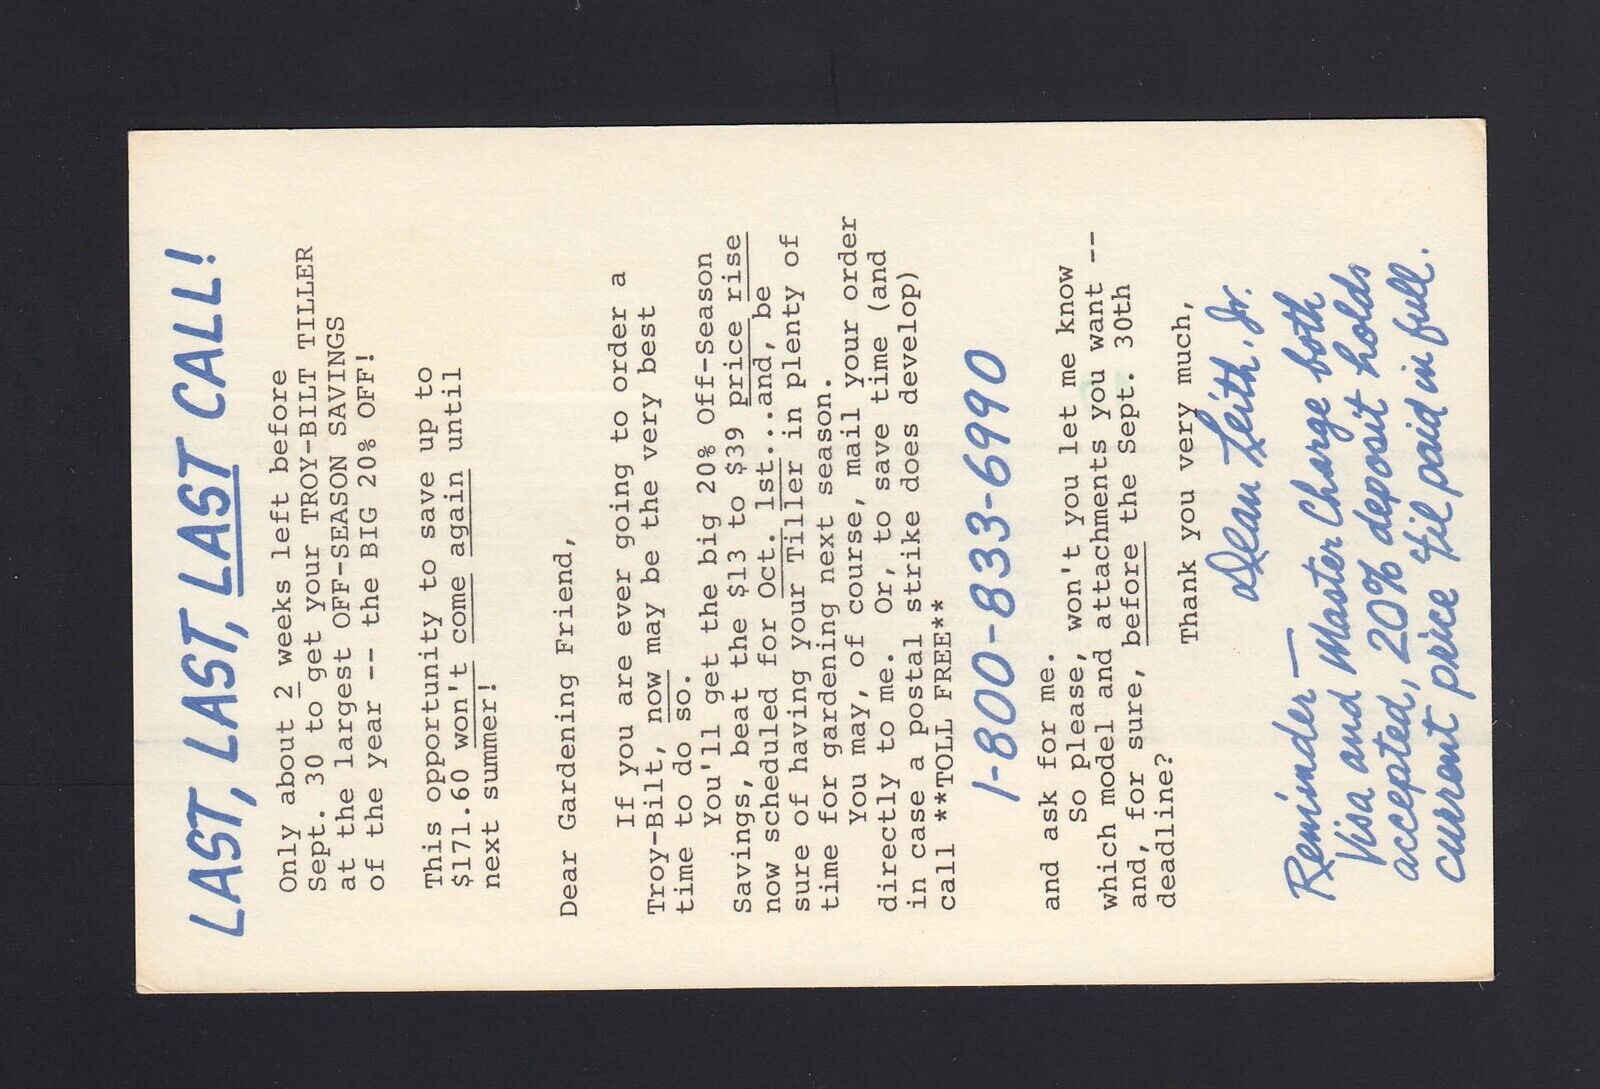 LAST, LAST, LAST CALL!
Only about 2 weeks left before
Sept. 30 to get your TROY-BILT TILLER
at the largest OFF-SEASON SAVINGS
of the year -- the BIG 20% OFF!
This opportunity to save up to
$171.60 won't come again until
next summer!
Dear Gardening Friend,
If you are ever going to order a
Troy-Bilt, now may be the very best
time to do so.
You'll get the big 20% Off-Season
Savings, beat the $13 to $39 price rise
now scheduled for Oct. 1st...and, be
sure of having your Tiller in plenty of
time for gardening next season.
You may, of course, mail your order
directly to me. Or, to save time (and
in case a postal strike does develop)
call **TOLL FREE**
1-800-833-6990
and ask for me.
So please, won't you let me know
which model and attachments you want --
and, for sure, before the Sept. 30th
deadline?
Thank you very much,
Dean Leith, Jr.
Reminder—
Visa and Master Charge both
accepted, 20% deposit holds
current price 'til paid in full.